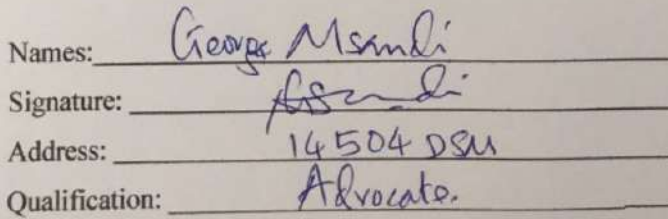 Names: George Msandi
Signature:
Address: 14504 DSM
Qualification: Advocate.